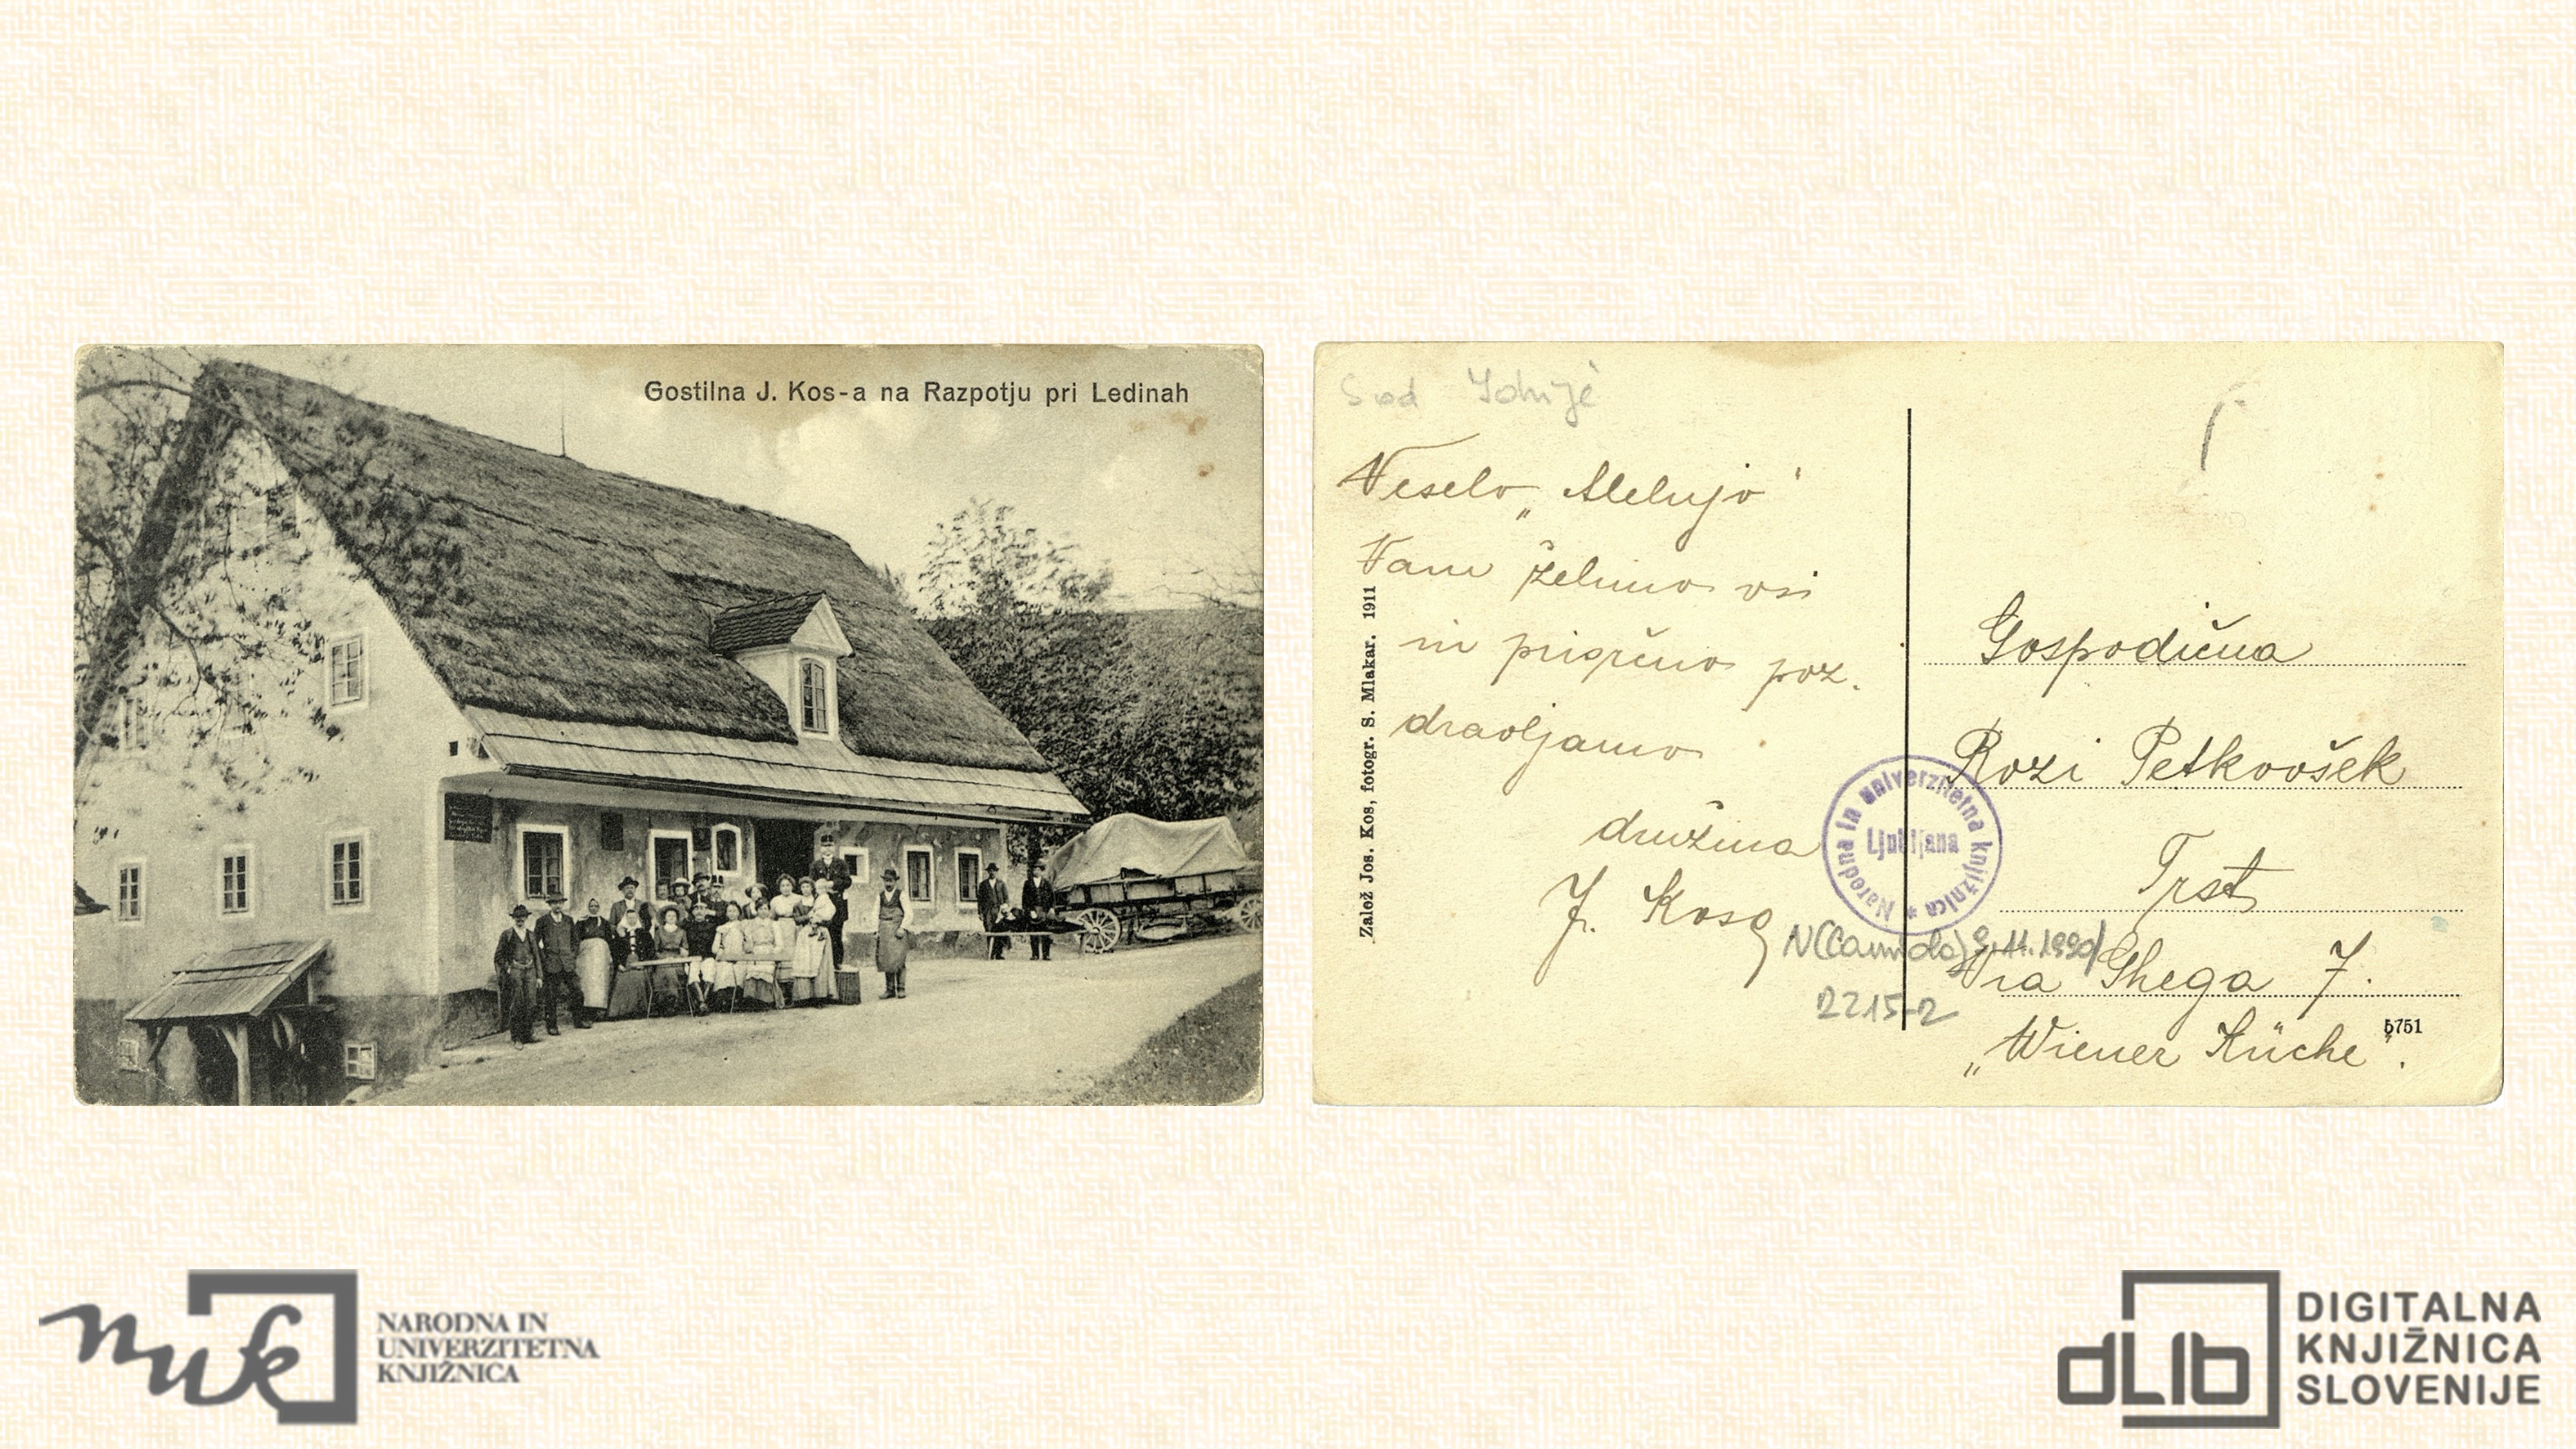 Gostilna J. Kos-a na Razpotju pri Ledinah
S od Idrije
Veselo „Alelujo"
Vam želimo vsi
in prisrčno poz.
dravljamo
družina
J. Kosa
Založ Jos. Kos, fotogr. S. Mlakar. 1911
Narodna in univerzitetna knjižnica *
Ljubljana
11. 1990/
2215-2
Gospodična
Rozi Petkovšek
Trst
Via Ghega 7.
„Wiener Küche".
5751
nuk
NARODNA IN
UNIVERZITETNA
KNJIŽNICA
dLib
DIGITALNA
KNJIŽNICA
SLOVENIJE